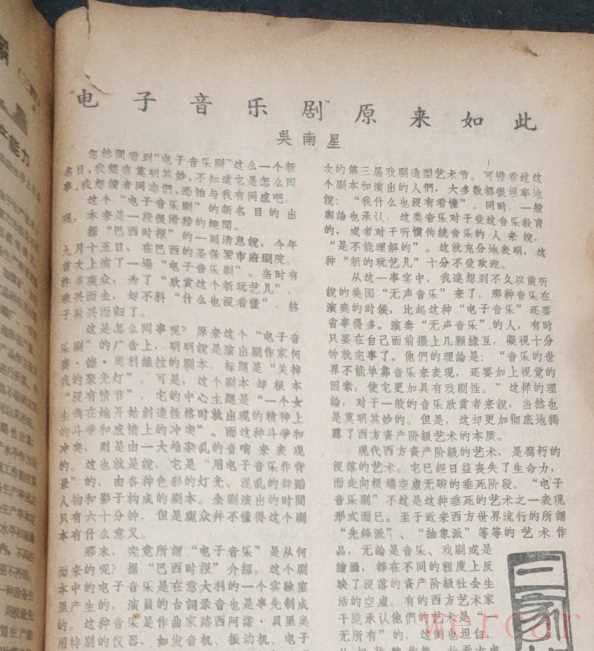 电子音乐剧原来如此
吳南星
忽然間看到“电子音乐剧”这么一个新
名目，我感到莫明其妙，不知道它是怎么回
事。我想讀者同志們，恐怕与我有同感吧
这个“电子音乐剧”的新名目的出
現，本来是一段很滑稽的趣聞。
据“巴西时报”的一則消息說，今年
九月十五日，在巴西的圣保罗市府剧院，
首次上演了一場“电子音乐剧”。当时有
許多观众，为了“欣赏这个新玩艺儿”，
乘兴而去，好不料“什么也沒看懂”，終
于敗兴而归了。
这是怎么回事呢？原来这个“电子音
乐剧”的广告上，明明說是演出剧作家何
賽·德·奧利維拉的剧本，标題是“关掉
我的聚光灯”。可是，这个剧本却根本
“沒有情节”，它的中心主題是“一个女
主角在她开始創造性格时就出現的精神上
的斗爭和感情上的冲突”。而这种斗爭和
冲突，則是由一大堆杂乱的音响来表現
的。这也就是說，它是“用电子音乐作背
景”的，由各种色彩的灯光、混乱的舞蹈
人物和影子构成的剧本。全剧演出的时間
只有六十分钟，但是观众并不懂得这个剧
本有什么意义。
那末，究竟所謂“电子音乐”是从何
而来的呢？据“巴西时报”介紹，这个剧
本中的电子音乐是在意大利的一个实驗室
里产生的，演員的台詞录音也是事先制成
的。这种音乐是作曲家路西阿諾·貝里奧
用特別的仪器，如发音机、振动机、电子
次的第三届戏剧造型艺术节。可惜看过这
个剧本和演出的人們，大多数都很坦率地
說：“我什么也沒有看懂”。同时，一般
輿論也承认，这类音乐对于受过音乐教育
的，或者对于听慣传統音乐的人来說，
“是不能理解的”。这就充分地表明，这
种“新的玩艺儿”十分不受欢迎。
从这一事实中，我連想到不久以前所
說的美国“无声音乐”来了。那种音乐在
演奏的时候，比起这种“电子音乐”还要
省事得多。演奏“无声音乐”的人，有时
只要在自己面前摆上几顆綠豆，凝視十分
钟就完事了。他們的理論是：“音乐的世
界不能单靠音乐来表現，还要加上視觉的
因素，使它更加具有戏剧性。”这样的理
論，对于一般的音乐欣賞者来說，当然也
是莫明其妙的。但是，这却更加彻底地揭
露了西方資产阶級艺术的本质。
現代西方資产阶級的艺术，是腐朽的
沒落的艺术。它已經日益丧失了生命力，
而走向极端空虛无聊的垂死阶段。“电子
音乐剧”不过是这种垂死的艺术之一表現
形式而已。至于近来西方世界流行的所謂
“先鋒派”、“抽象派”等等的艺术作
品，无論是音乐、戏剧或是
繪画，都在不同的程度上反
映了沒落的資产阶級社会生
活的空虛。有的西方艺术家
干脆承认他們的艺术是“一
无所有”的，这倒也坦白。
三家